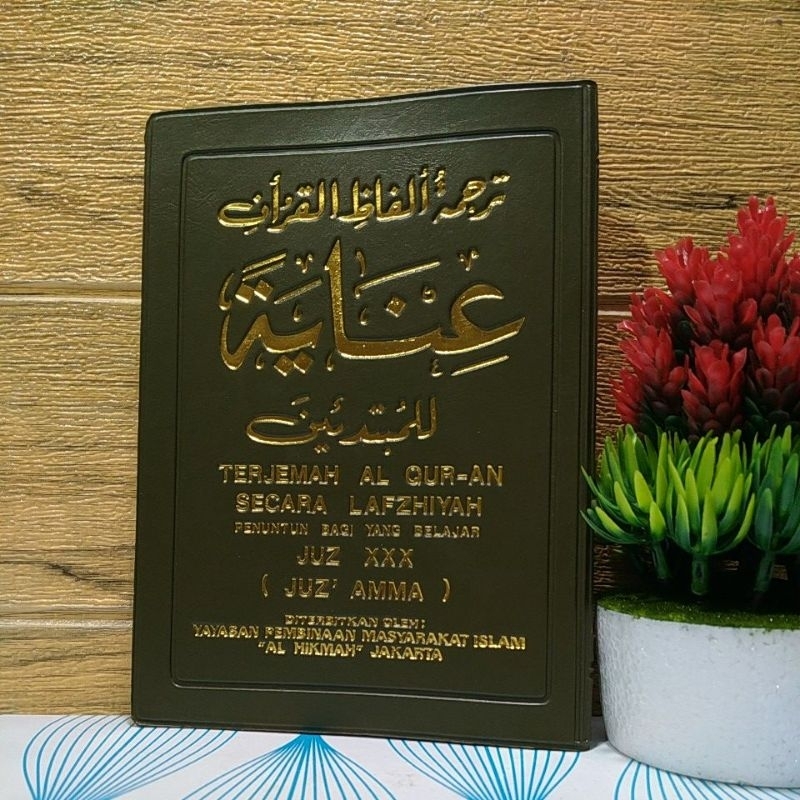 ترجمة ألفاظ القرأن
عِنَايَةً
للمُبتدئينَ
TERJEMAH AL QUR-AN
SECARA LAFZHIYAH
PENUNTUN BAGI YANG BELAJAR
JUZ XXX
( JUZ' AMMA )
DITERBITKAN OLEH :
YAYASAN PEMBINAAN MASYARAKAT ISLAM
"AL HIKMAH" JAKARTA